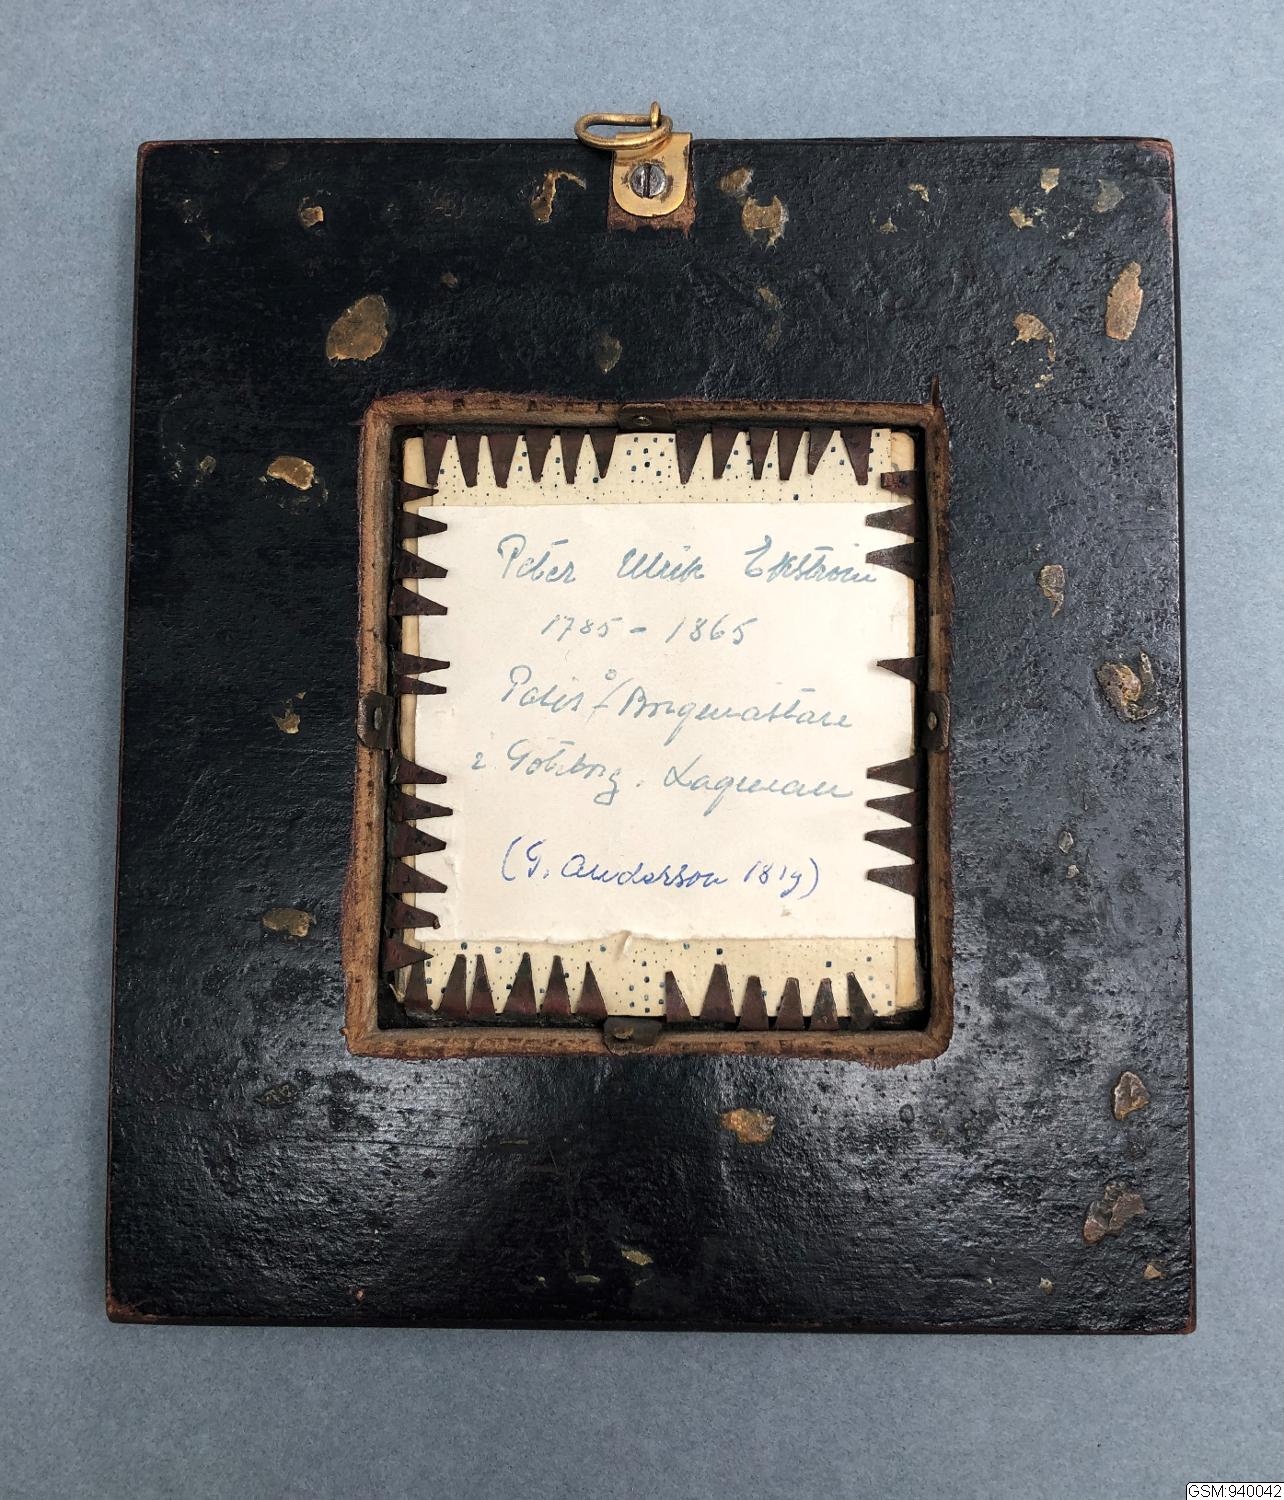 Peter Ulrik Ekström
1785 - 1865
Polis Borgmästare
i Göteborg. Lagman
(G. Andersson 1819)
GSM:940042